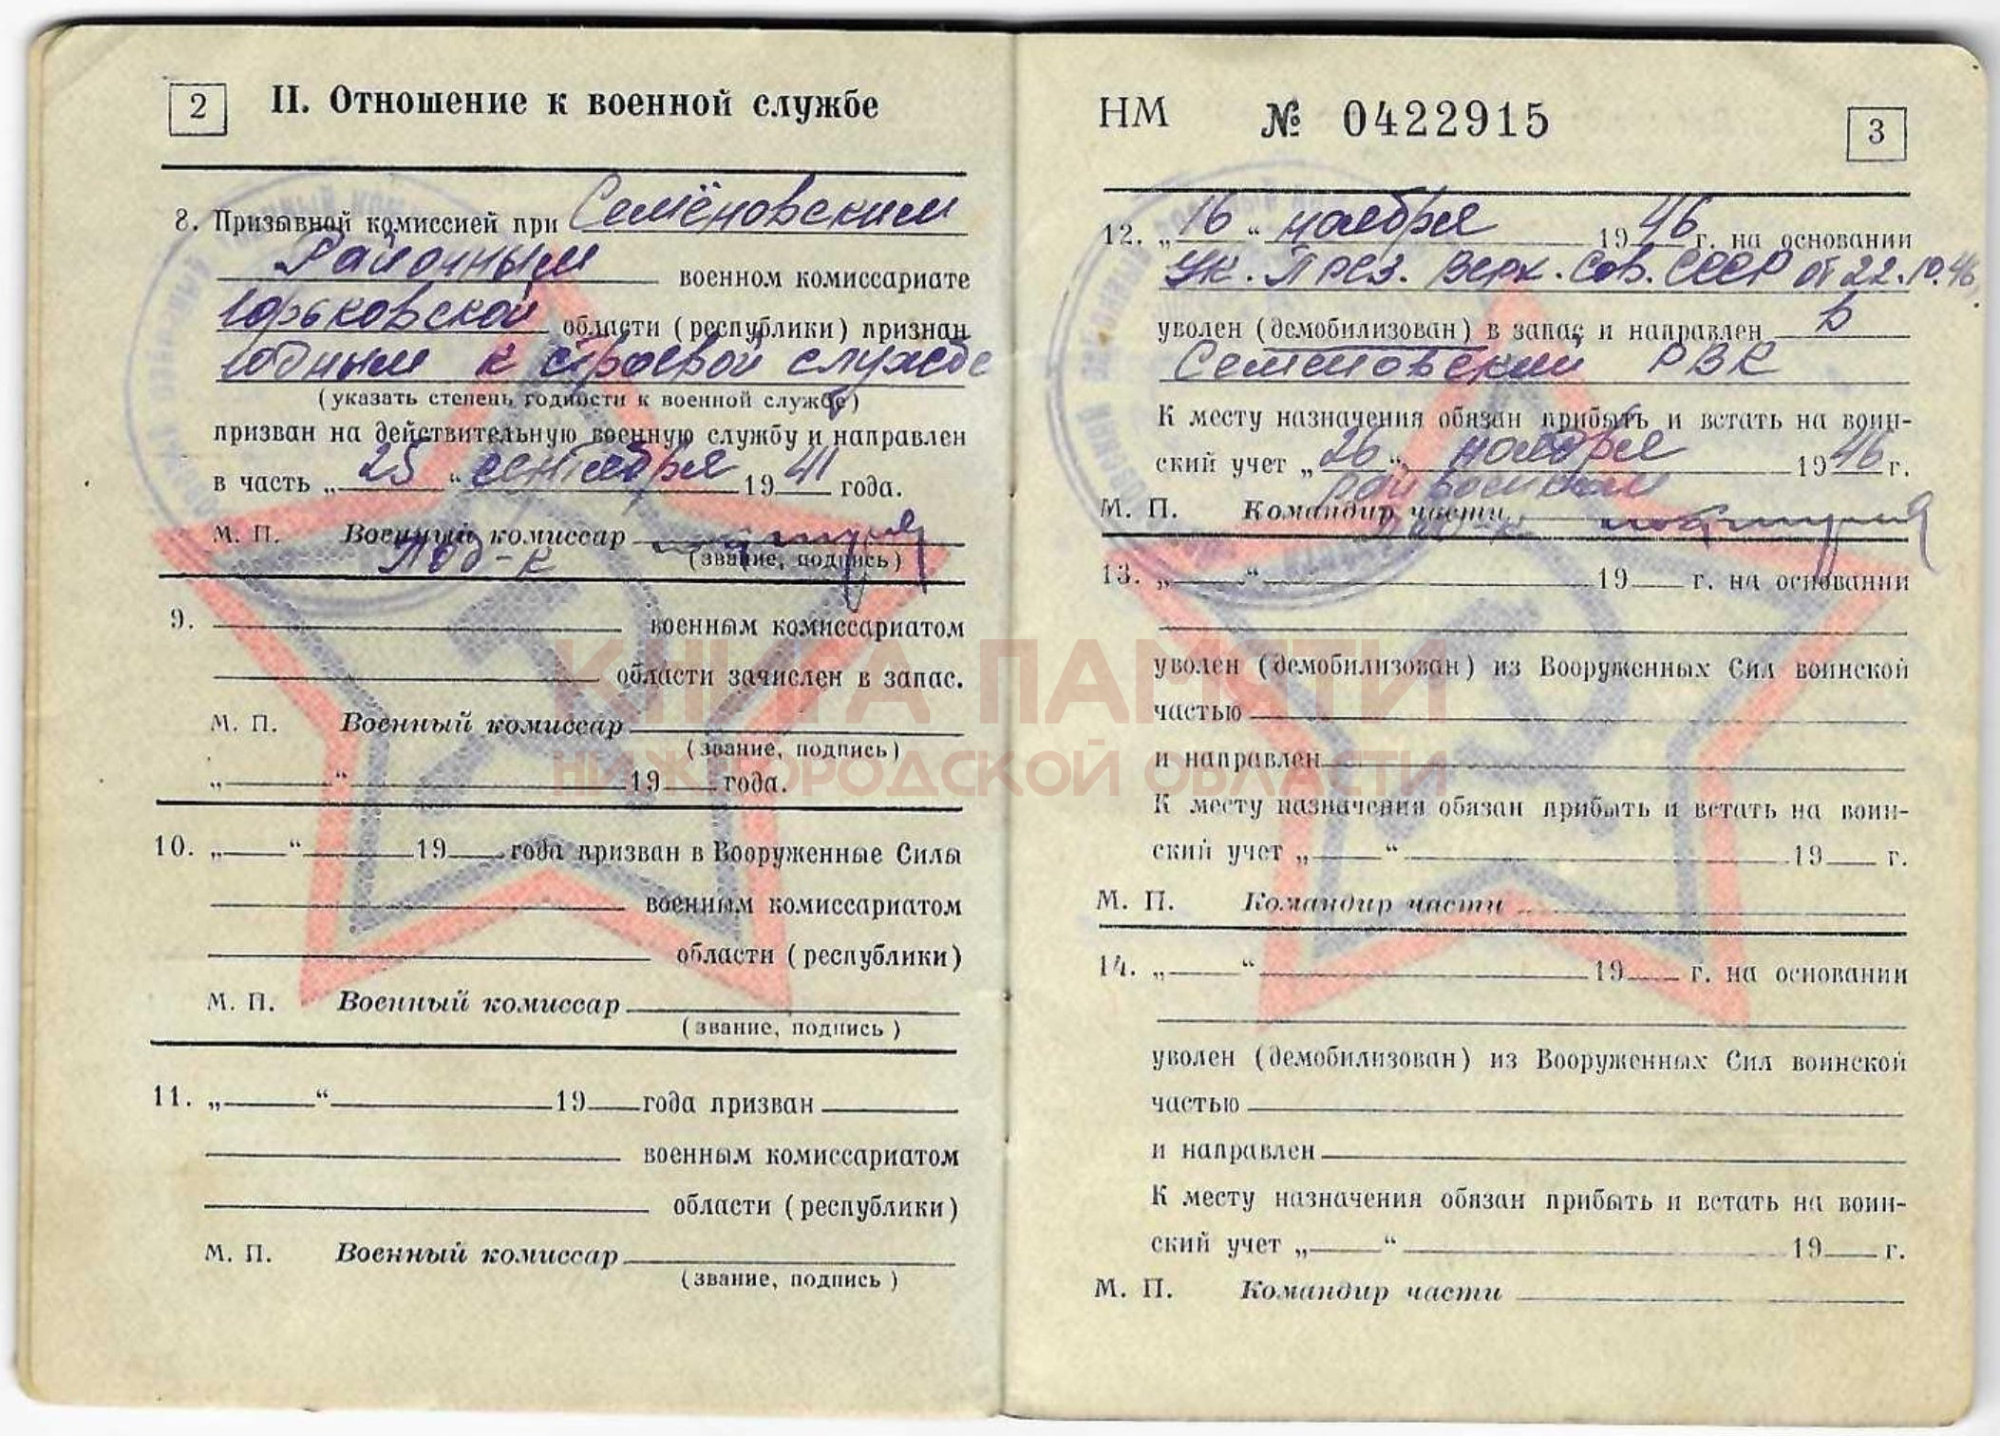 2 II. Отношение к военной службе
8. Призывной комиссией при Семёновским
Районным военном комиссариате
Горьковской области (республики) признан
годным к строевой службе
(указать степень годности к военной службе)
призван на действительную военную службу и направлен
в часть „25“ сентября 1941 года.
М. П. Военный комиссар
Под-к (звание, подпись)
9. военным комиссариатом
области зачислен в запас.
М. П. Военный комиссар
(звание, подпись)
„ “ 19 года.
10. „ “ 19 года призван в Вооруженные Силы
военным комиссариатом
области (республики)
М. П. Военный комиссар
(звание, подпись)
11. „ “ 19 года призван
военным комиссариатом
области (республики)
М. П. Военный комиссар
(звание, подпись)
НМ № 0422915 3
12. „16“ ноября 1946 г. на основании
Ук. През. Верх. Сов. СССР от 22.10.46
уволен (демобилизован) в запас и направлен в
Семеновский РВК
К месту назначения обязан прибыть и встать на воин-
ский учет „26“ ноября 1946 г.
райвоенком
М. П. Командир части
13. „ “ 19 г. на основании
уволен (демобилизован) из Вооруженных Сил воинской
частью
и направлен
К месту назначения обязан прибыть и встать на воин-
ский учет „ “ 19 г.
М. П. Командир части
14. „ “ 19 г. на основании
уволен (демобилизован) из Вооруженных Сил воинской
частью
и направлен
К месту назначения обязан прибыть и встать на воин-
ский учет „ “ 19 г.
М. П. Командир части
КНИГА ПАМЯТИ
НИЖЕГОРОДСКОЙ ОБЛАСТИ